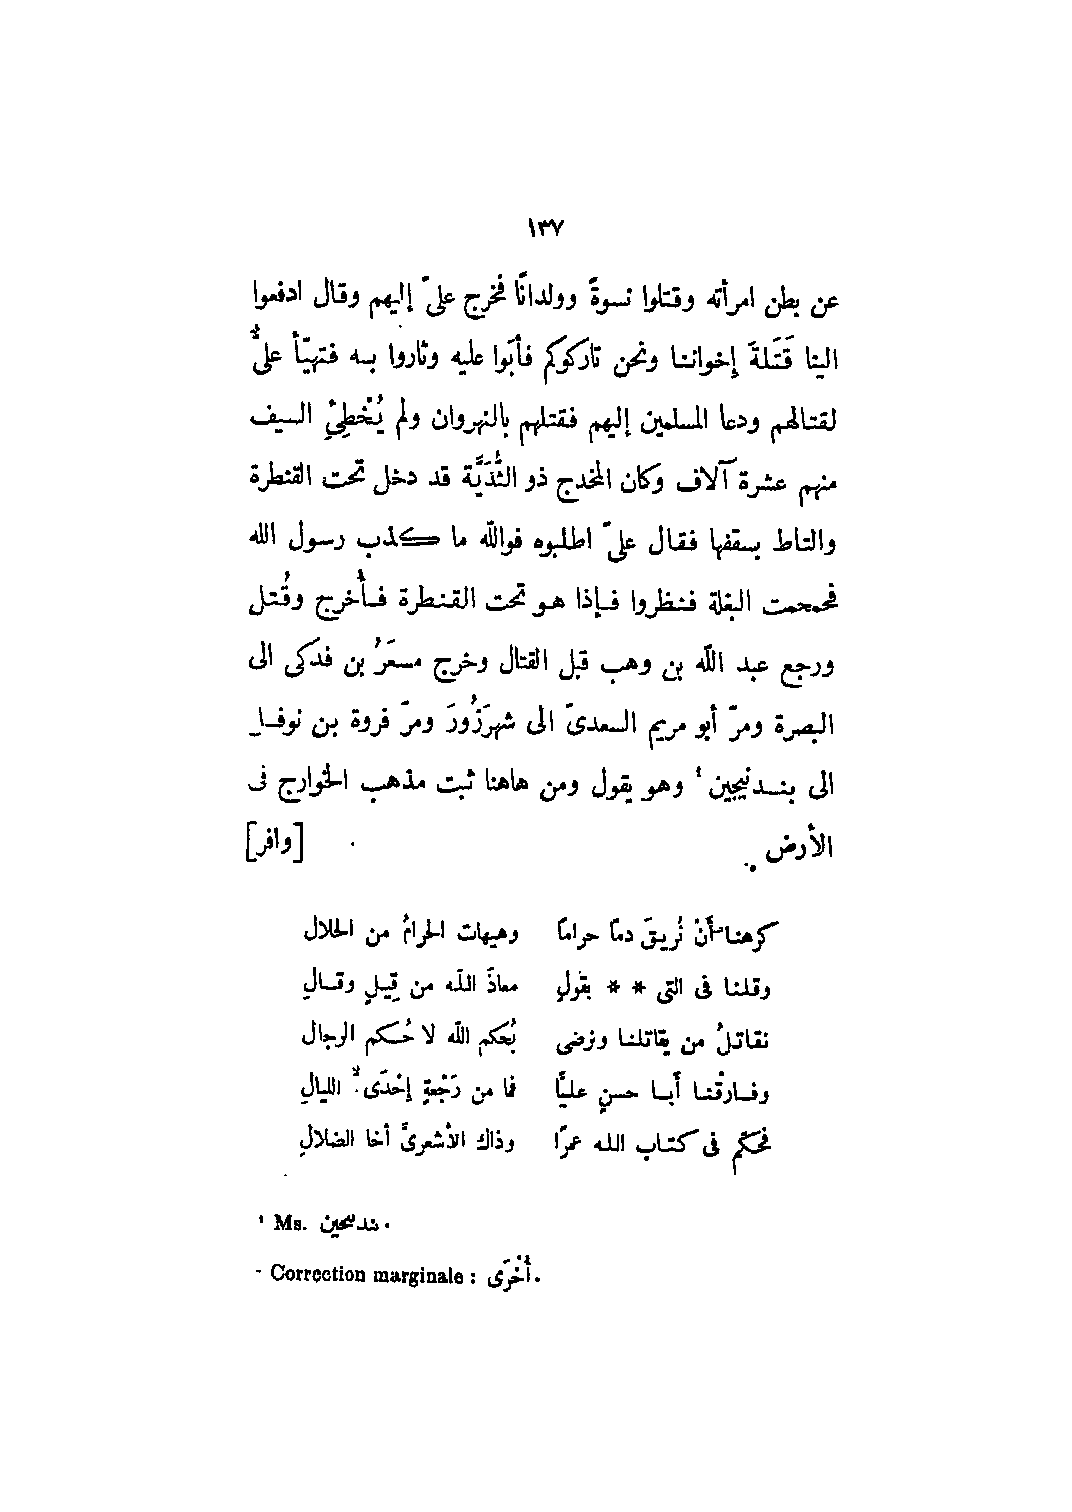 ١٣٧
عن بطن امرأته وقتلوا نسوةً وولدانًا فخرج علىّ إليهم وقال ادفعوا
الينا قَتَلةَ إخواننا ونحن تاركوكم فأبَوا عليه وثاروا به فتهيّأ علىٌّ
لقتالهم ودعا المسلمين إليهم فقتلهم بالنهروان ولم يُخْطِئِ السيف
منهم عشرة آلاف وكان المخدج ذو الثُدَيَّة قد دخل تحت القنطرة
والتاط بسقفها فقال علىّ اطلبوه فوالله ما كذب رسول الله
فحمحمت البغلة فنظروا فإذا هو تحت القنطرة فأُخرج وقُتل
ورجع عبد الله بن وهب قبل القتال وخرج مسعَرُ بن فدَكى الى
البصرة ومرّ أبو مريم السعدىّ الى شهرَزُورَ ومرّ فروة بن نوفل
الى بندنيجين ¹ وهو يقول ومن هاهنا ثبت مذهب الخوارج فى
الأرض [وافر]
كرهنا أَنْ نُريقَ دمًا حرامًا وهيهات الحرامُ من الحلال
وقلنا فى التى * * بقولٍ معاذَ الله من قِيلٍ وقالِ
نقاتلُ من يقاتلنا ونرضى بُحكم الله لا حُكم الرجال
وفارقْنا أبا حسنٍ عليًّا فما من رَجْعةٍ إحْدَى ² الليالِ
فحكّم فى كتاب الله عمرًا وذاك الأشعرىَّ أخا الضلالِ
¹ Ms. .
² Correction marginale : أُخْرَى.